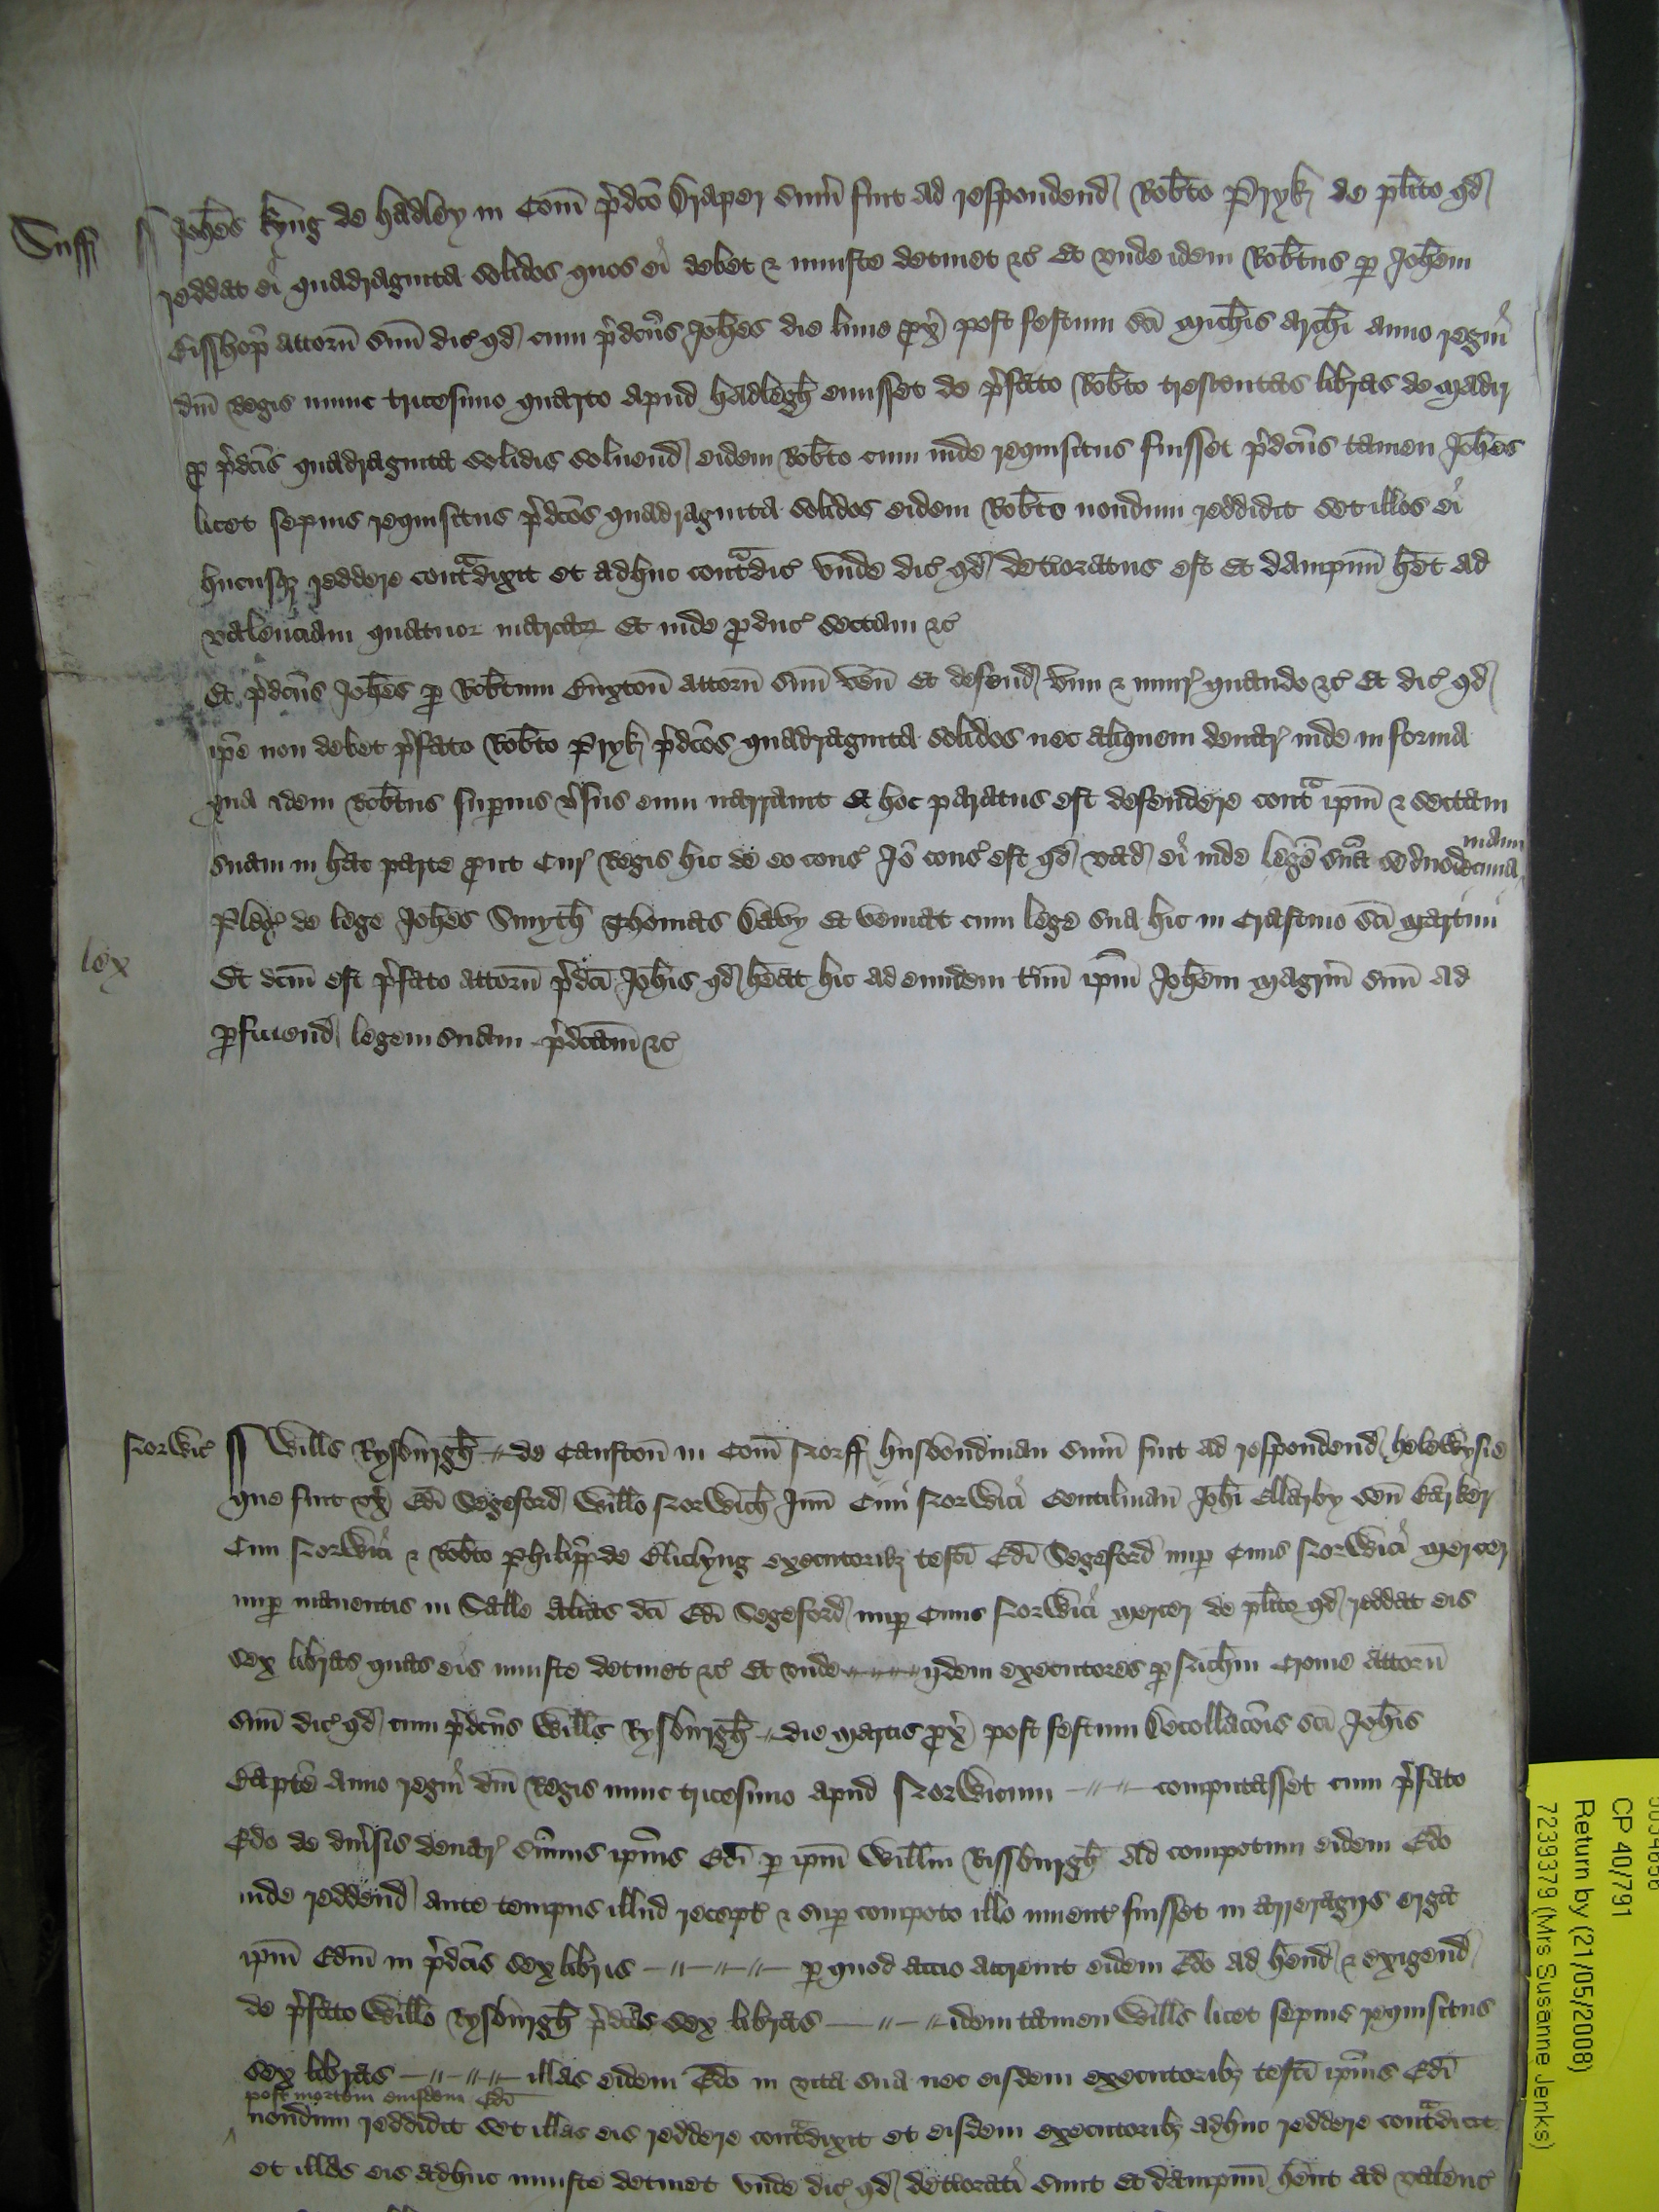 Suff
Joh̄es Kyng de Hadley in Com̄ p̄dc̄o Draper sum̄ fuit ad respondend Rob̄to Pryk de pl̄ito qd
reddat ei quadraginta solidos quos ei debet & iniuste detinet &c Et unde idem Rob̄tus p Joh̄em
Bisshop attorn̄ suū dic qd cum p̄dc̄us Joh̄es die lune px post festum sc̄i Mich̄is Arch̄i anno regni
dn̄i Regis nunc tricesimo quarto apud Hadlegh emisset de p̄fato Rob̄to trescentas libras de Madir
p p̄dc̄is quadraginta solidis soluend eidem Rob̄to cum inde requisitus fuisset p̄dc̄us tamen Joh̄es
licet sepius requisitus p̄dc̄os quadraginta solidos eidem Rob̄to nondum reddidit set illos ei
hucusq reddere contradixit et adhuc contradic unde dic qd detioratus est Et dampnū h̄et ad
valenciam quatuor marcar Et inde pduc sectam &c
Et p̄dc̄us Joh̄es p Rob̄tum attorn̄ suū ven̄ Et defend vim & iniur quando &c Et dic qd
ip̄e non debet p̄fato Rob̄to Pryk p̄dc̄os quadraginta solidos nec aliquem denar inde in forma
qua idem Rob̄tus superius v̄sus eum narrauit Et hoc paratus est defendere contra ip̄m & sectam
suam in hac parte put Cur Regis hic de eo cons Jō cons est qd vad ei inde legē suā se duodecima
manu
Pleg de lege Joh̄es Smyth Thomas Davy Et veniat cum lege sua hic in Crastino sc̄i Martini
lex
Et dc̄m est p̄fato attorn̄ p̄dc̄i Joh̄is qd h̄eat hic ad eundem t̄m̄ ip̄m Joh̄em magr̄m suū ad
pficiend legem suam p̄dc̄am &c
Norwic
Will̄s Rysburgh de Causton̄ in Com̄ Norff husbondman sum̄ fuit ad respondend Helewysie
que fuit ux Edī Segeford Will̄o Norwich Jun̄ Ciui Norwici Gentilman̄ Joh̄i Ellarby sen̄ Barker
Ciui Norwici & Rob̄to Philipp de Bliclyng executorib testī Edī Segeford nup Ciuis Norwici mercer
nup manentis in Salle alias dc̄i Edī Segeford nup Ciuis Norwici mercer de pl̄ito qd reddat eis
sex libras quas eis iniuste detinet &c Et unde ijdem executores p Nich̄m Crome attorn̄
suū dic qd cum p̄dc̄us Will̄s Rysburgh die martis px post festum Decollac̄ōis sc̄i Joh̄is
Bapte anno regni dn̄i Regis nunc tricesimo apud Norwicum computasset cum p̄fato
Edo de diūsis denar sum̄is ip̄ius Edī p ip̄m Will̄m Rissburgh ad compotum eidem Edo
inde reddend ante tempus illud recept & sup compoto illo inuent fuisset in arreragijs erga
ip̄m Edm̄ in p̄dc̄is sex libris p quod accio accreuit eidem Edo ad h̄end & exigend
de p̄fato Will̄o Rysburgh p̄dc̄as sex libras idem tamen Will̄s licet sepius requisitus
sex libras illas eidem Edo in vita sua nec eisdem executorib testī ip̄ius Edī
post mortem eiusdem Edī
nondum reddidit set illas eis reddere contradixit et eisdem executorib adhuc reddere contradicit
et illas eis adhuc iniuste detinet unde dic qd detiorati sunt Et dampnū h̄ent ad valenc
CP 40/791
Return by (21/05/2008)
7239379 (Mrs Susanne Jenks)